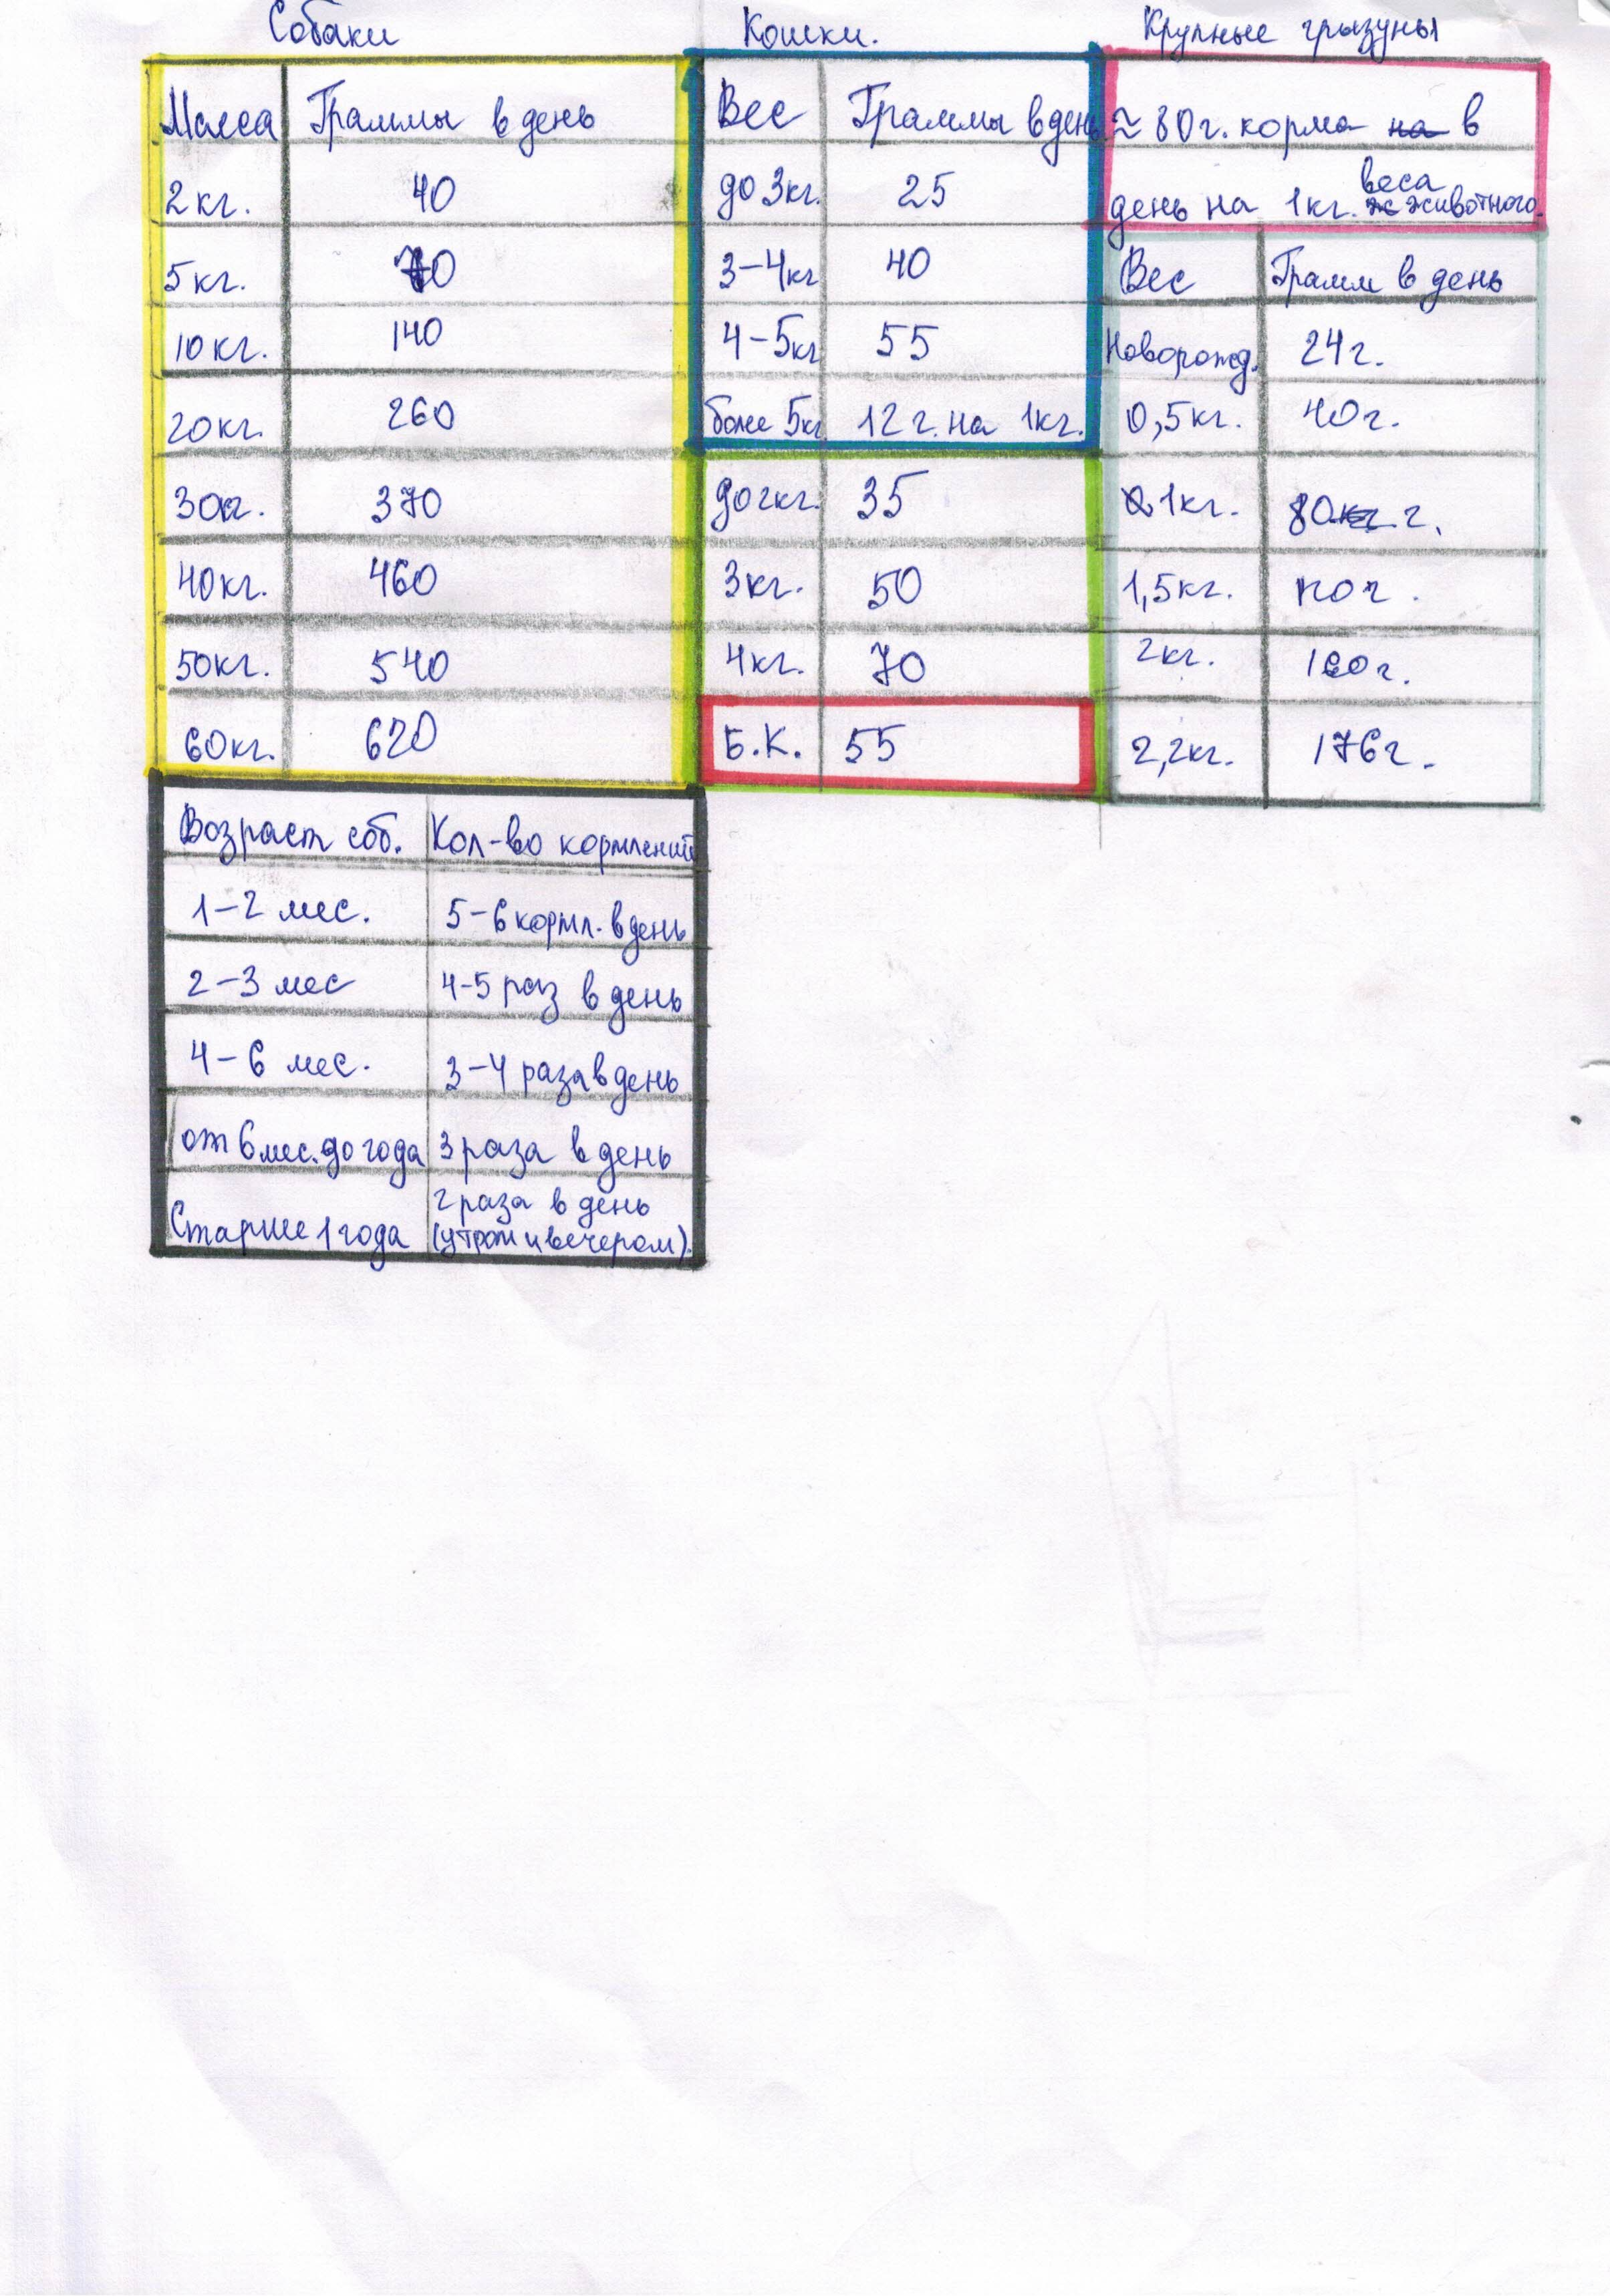 Собаки
Масса Граммы в день
2кг. 40
5кг. 70
10кг. 140
20кг. 260
30кг. 370
40кг. 460
50кг. 540
60кг. 620
Возраст соб. Кол-во кормлений
1-2 мес. 5-6 кормл. в день
2-3 мес 4-5 раз в день
4-6 мес. 3-4 раза в день
от 6 мес. до года 3 раза в день
Старше 1 года 2 раза в день
(утром и вечером).
Кошки.
Вес Граммы в день
до 3кг. 25
3-4кг 40
4-5кг 55
более 5кг. 12 г. на 1кг.
до 2кг. 35
3кг. 50
4кг. 70
Б.К. 55
Крупные грызуны
≈ 80г. корма на в
день на 1кг. веса животного.
Вес Грамм в день
Новорожд. 24г.
0,5кг. 40г.
1кг. 80кг г.
1,5кг. 120г.
2кг. 160г.
2,2кг. 176г.